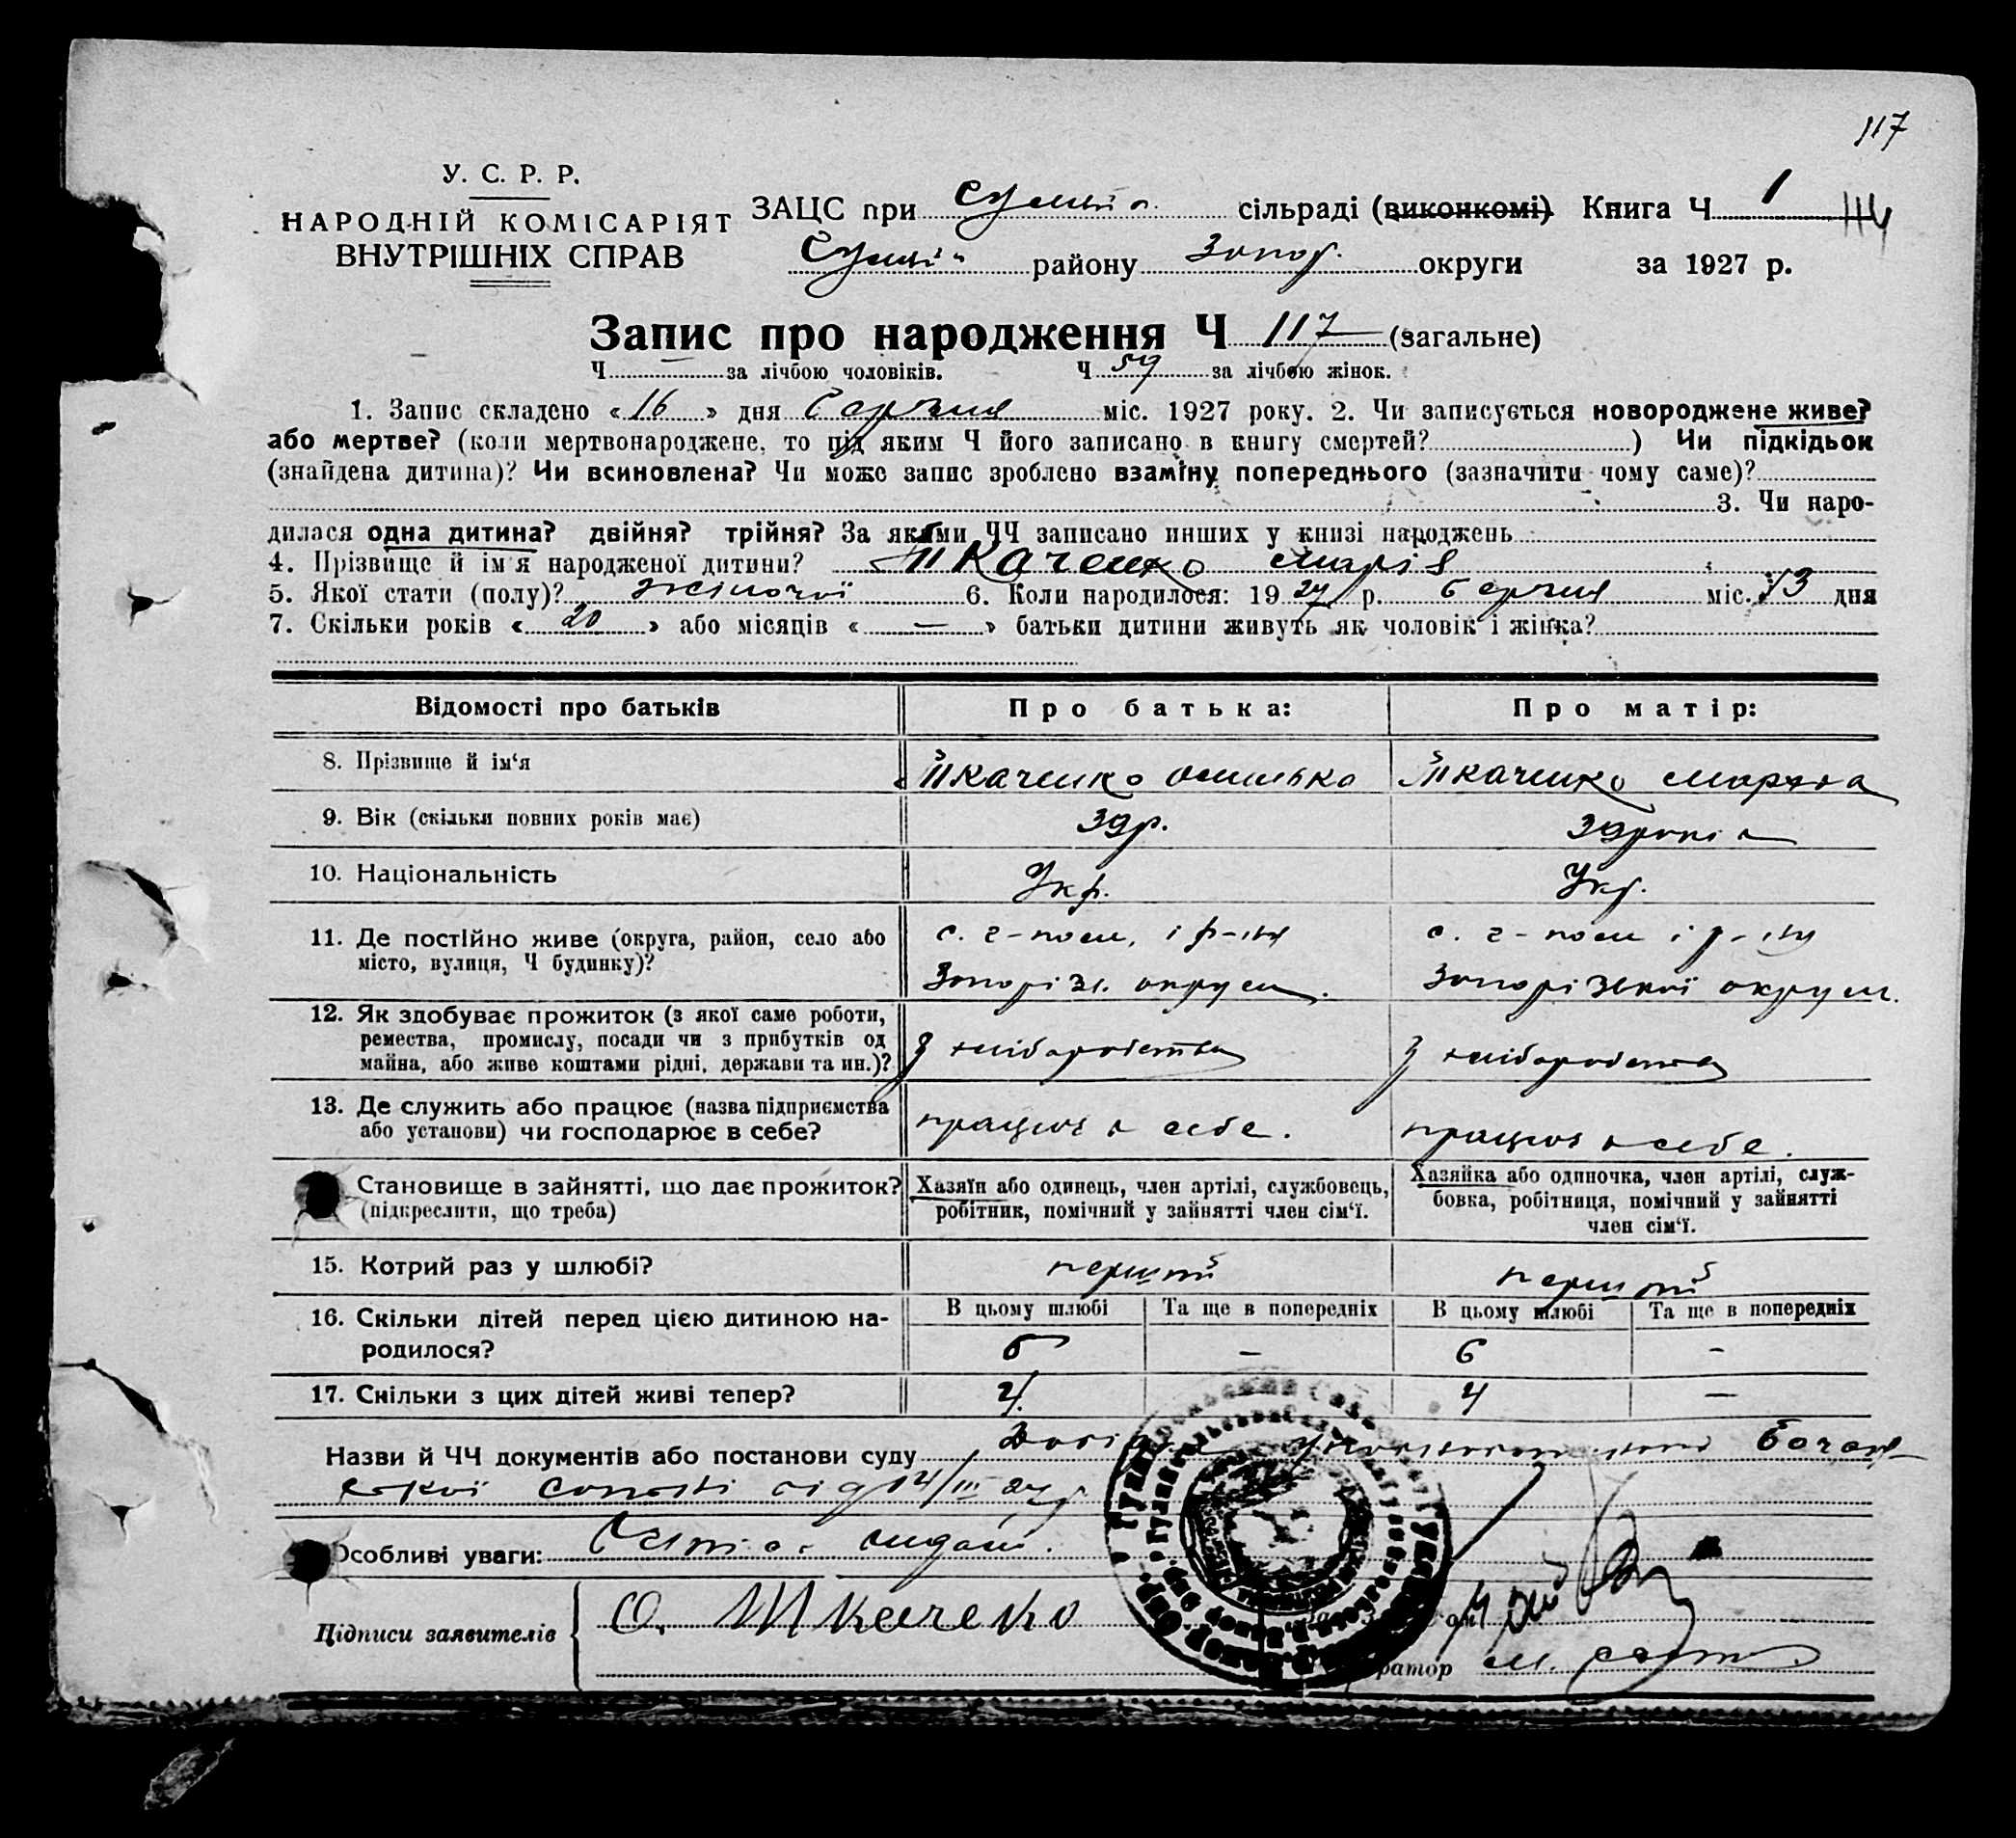 117
У. С. Р. Р.
НАРОДНІЙ КОМІСАРІЯТ
ВНУТРІШНІХ СПРАВ
ЗАЦС при сільраді (виконкомі). Книга Ч 1 114
району Запор. округи за 1927 р.
Запис про народження Ч 117 (загальне)
Ч — за лічбою чоловіків. Ч 57 за лічбою жінок.
1. Запис складено «16» дня Серпня міс. 1927 року. 2. Чи записується новороджене живе?
або мертве? (коли мертвонароджене, то під яким Ч його записано в книгу смертей? ) Чи підкідьок
(знайдена дитина)? Чи всиновлена? Чи може запис зроблено взаміну попереднього (зазначити чому саме)?
3. Чи наро-
дилася одна дитина? двійня? трійня? За якими ЧЧ записано инших у книзі народжень
4. Прізвище й ім'я народженої дитини? Ткаченко Марія
5. Якої стати (полу)? жіночої 6. Коли народилося: 1927 р. Серпня міс. 13 дня
7. Скільки років «20» або місяців «—» батьки дитини живуть як чоловік і жінка?
Відомості про батьків Про батька: Про матір:
8. Прізвище й ім'я Ткаченко Ткаченко
9. Вік (скільки повних років має) 39 р. 39 років
10. Національність Укр. Укр.
11. Де постійно живе (округа, район, село або с. г-поле, і р-ну с. г-поле і р-ну
місто, вулиця, Ч будинку)? Запоріз. округи. Запорізької округи.
12. Як здобуває прожиток (з якої саме роботи,
ремества, промислу, посади чи з прибутків од з хліборобства з хліборобства
майна, або живе коштами рідні, держави та ин.)?
13. Де служить або працює (назва підприємства
або установи) чи господарює в себе? працює в себе. працює в себе.
Становище в зайнятті, що дає прожиток? Хазяїн або одинець, член артілі, службовець, Хазяйка або одиночка, член артілі, служ-
(підкреслити, що треба) робітник, помічний у зайнятті член сім'ї. бовка, робітниця, помічний у зайнятті
член сім'ї.
15. Котрий раз у шлюбі? перший перший
16. Скільки дітей перед цією дитиною на- В цьому шлюбі Та ще в попередніх В цьому шлюбі Та ще в попередніх
родилося? 6 — 6 -
17. Скільки з цих дітей живі тепер? 4 4 —
Назви й ЧЧ документів або постанови суду
від 14/III 27 р.
Особливі уваги:
Підписи заявителів О. Ткаченко